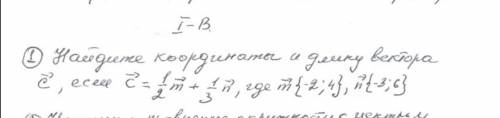 I-В.
① Найдите координаты и длину вектора
c⃗, если c⃗ = 1/2 m⃗ + 1/3 n⃗, где m⃗{-2; 4}, n⃗{-3; 6}